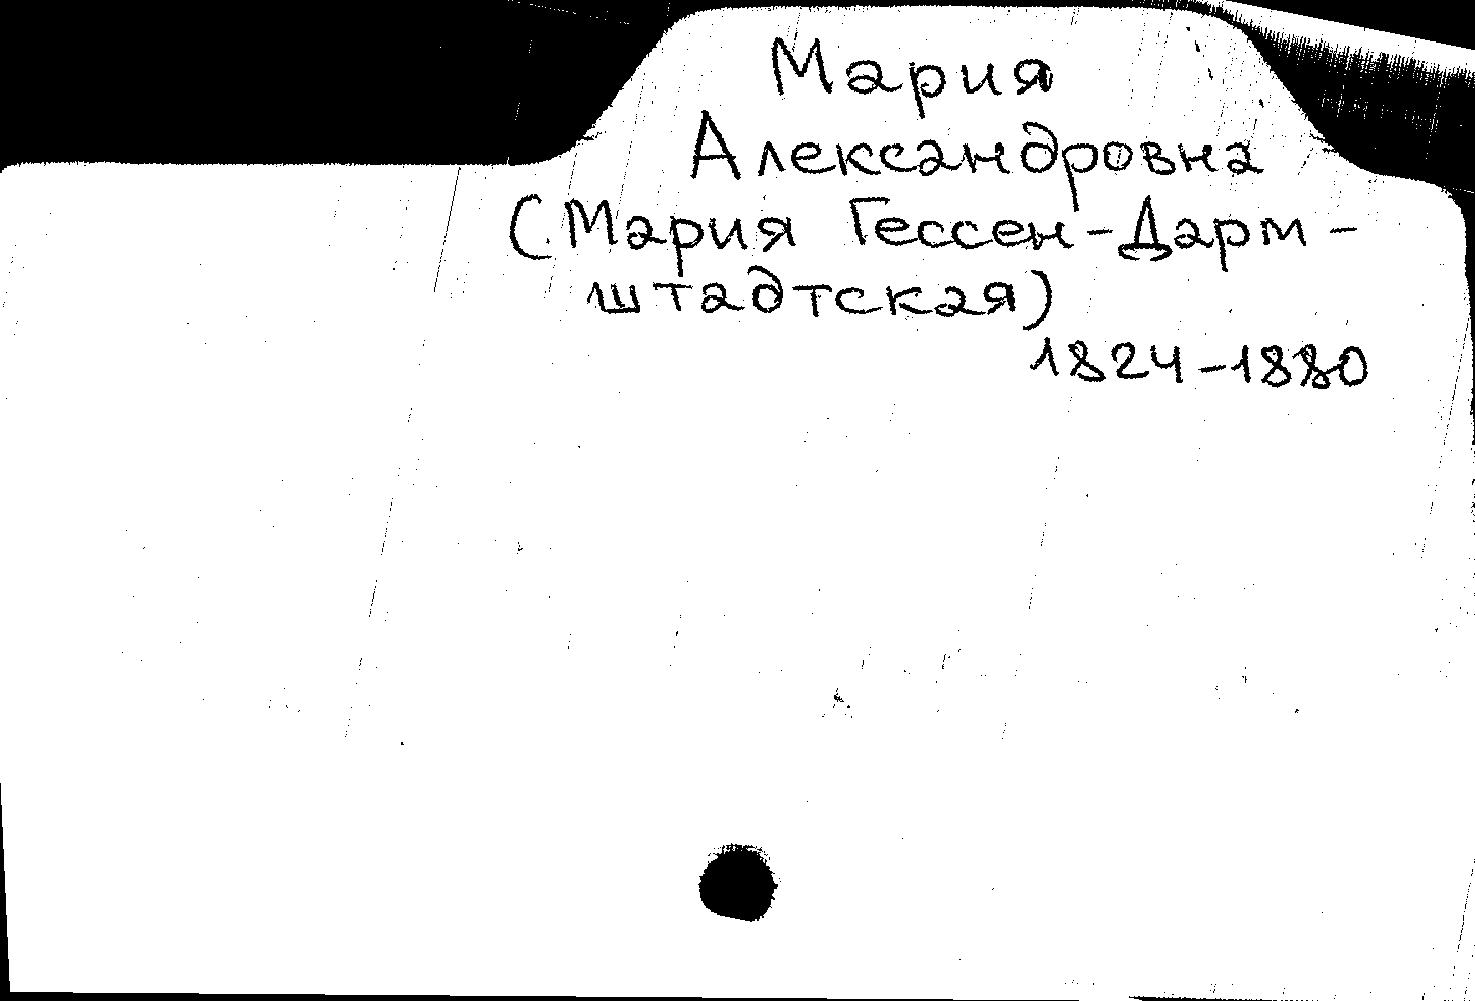 Мария
Александровна
(Мария Гессен-Дарм-
штадтская)
1824-1880